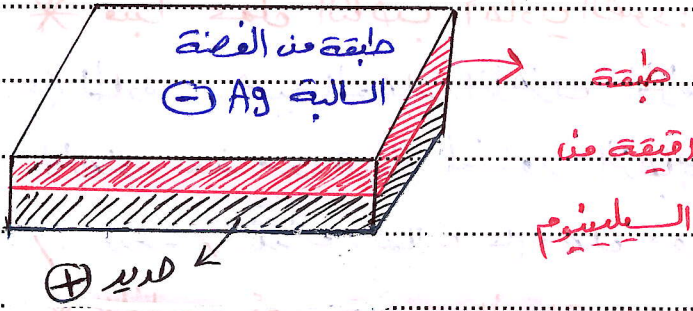 طبقة من الفضة
السالبة Ag ⊖
طبقة
رقيقة من
السيلينيوم
حديد ⊕